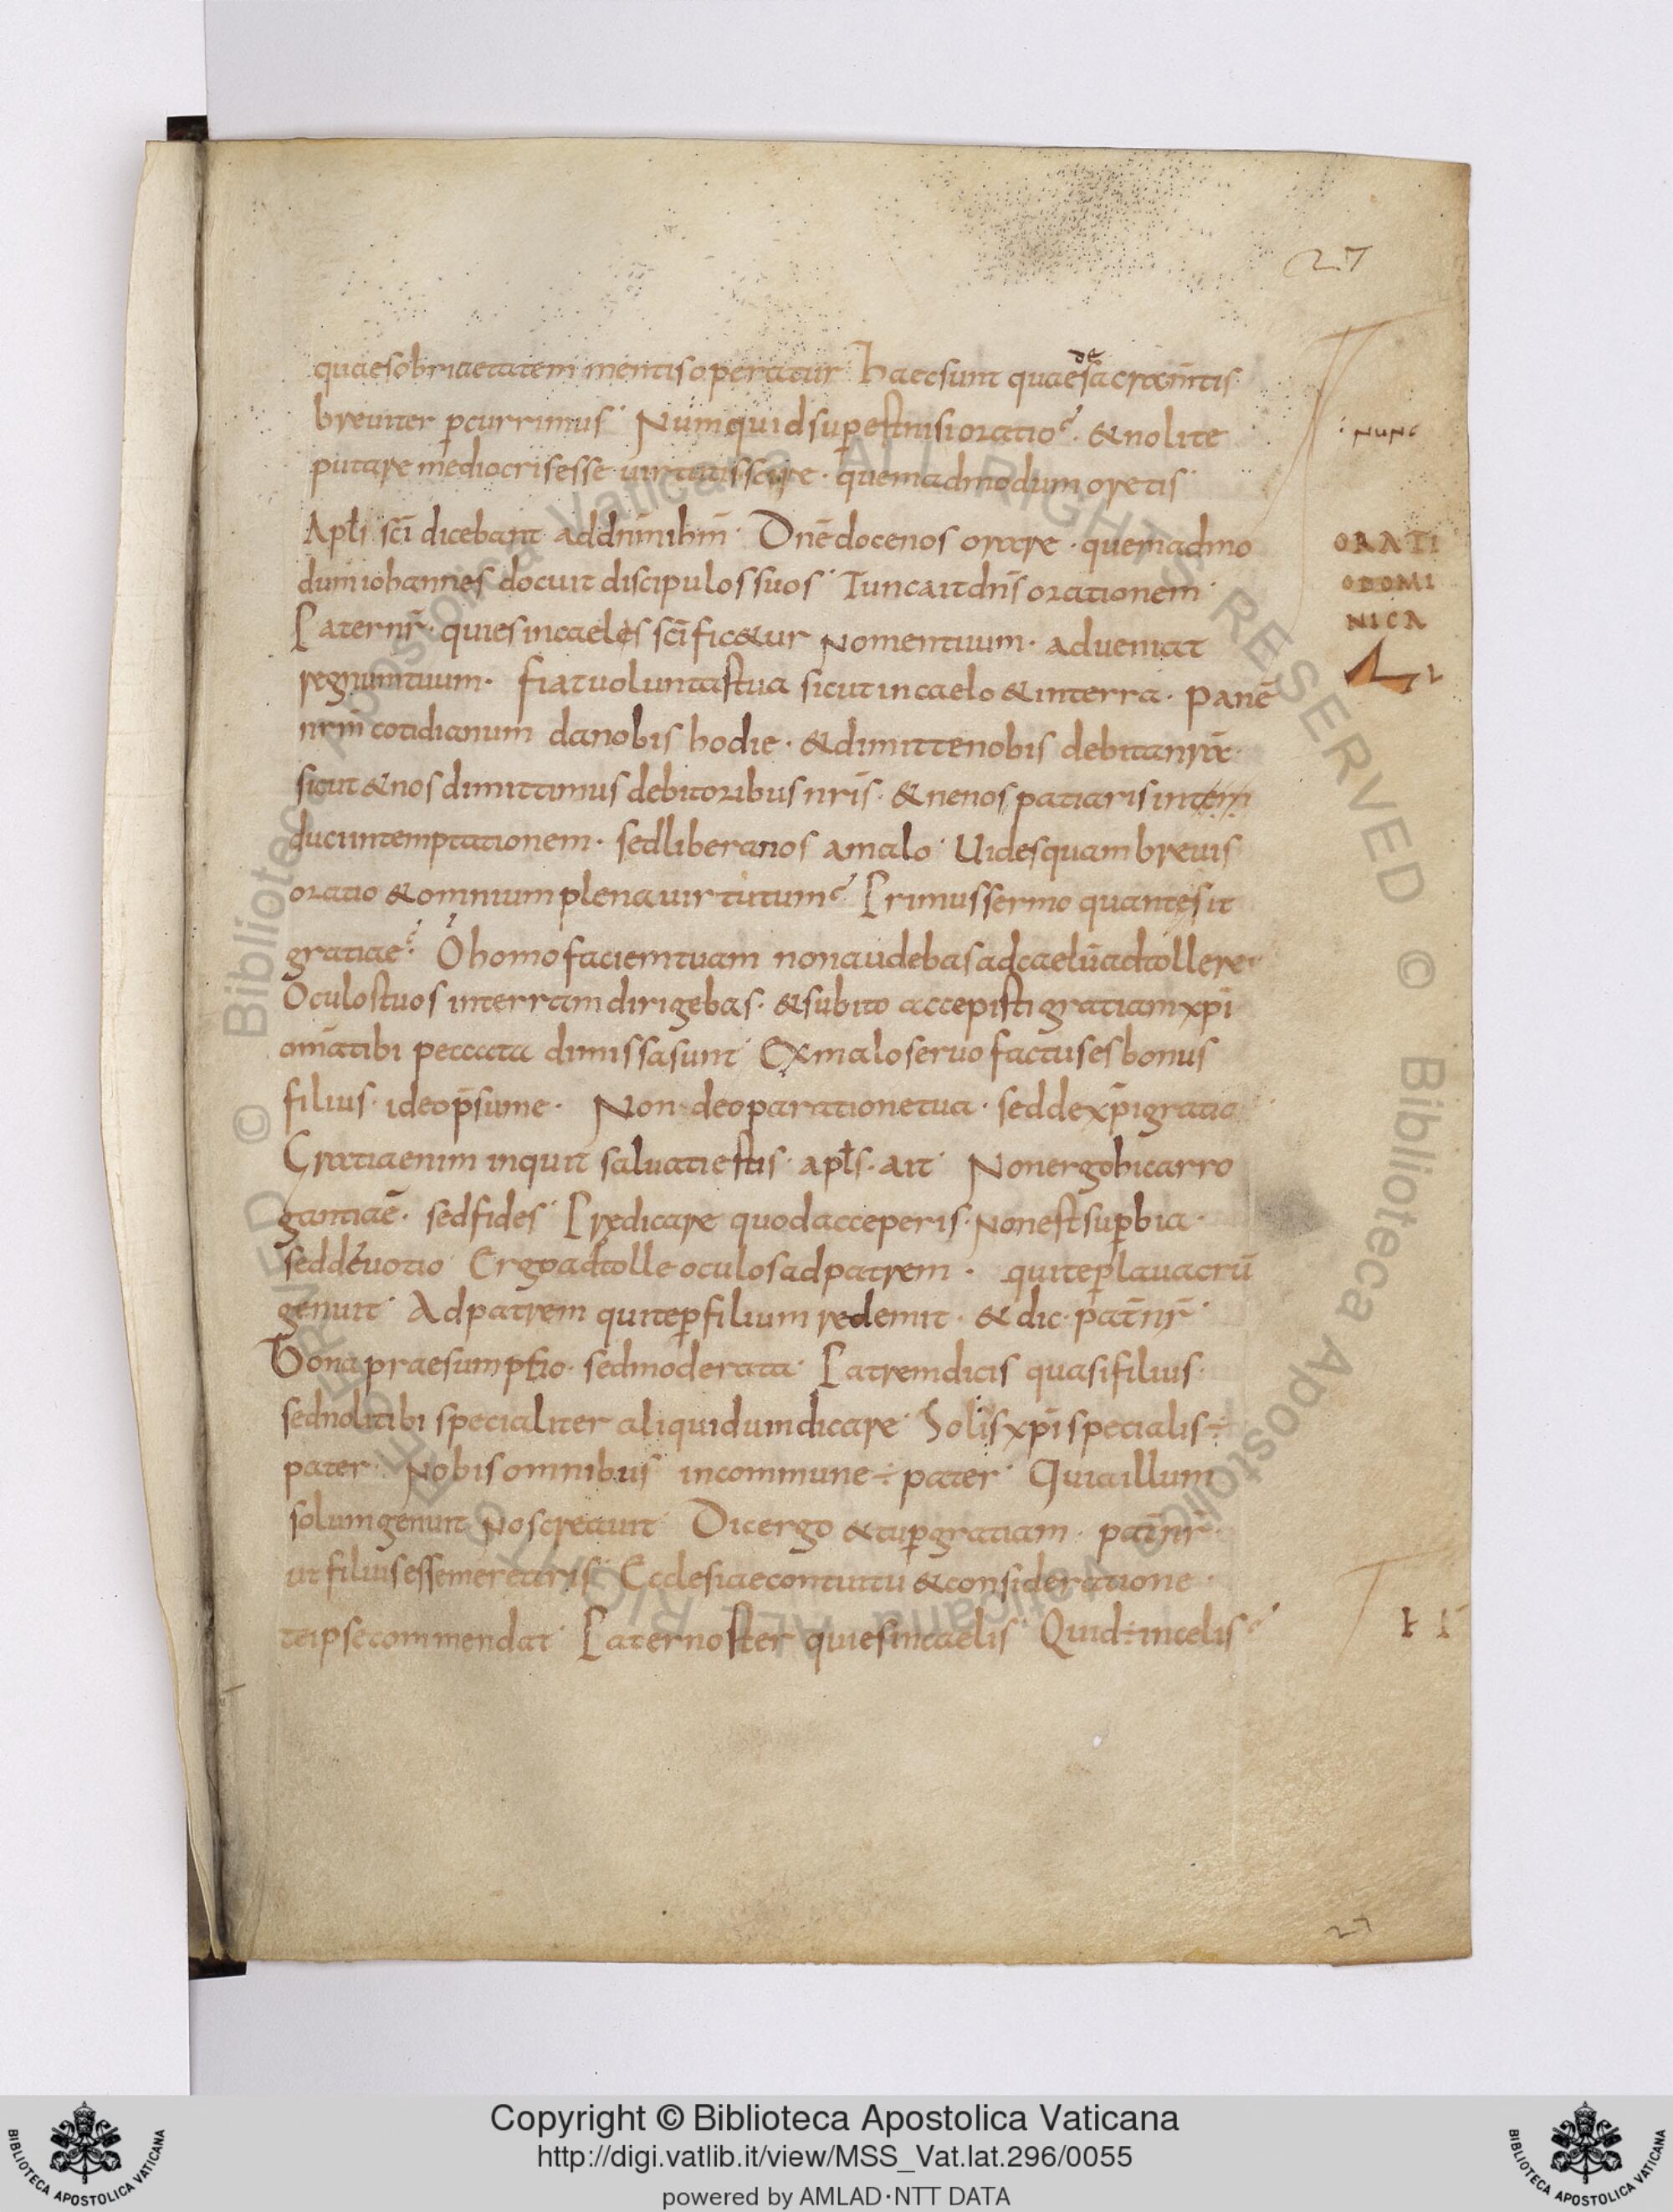 27
quaesobriaetatem mentisoperatur· Haecsunt quaedesacram̄tis·
breuiter p̱currimus· Numquidsup̱estnisioratio? &nolite
nunc
putare mediocrisesse uirtutisscire· quemadmodum oretis·
Apłi sc̄i dicebant addn̄mihm̄· Dn̄edocenos orare· quemadmo
ORATI
dumiohannes docuit discipulossuos· Tuncaitdn̄s orationem·
ODOMI
Paternr̄· quiesincaeles sc̄ific&ur Nomentuum· adueniat
NICA
regnumtuum· fiatuoluntastua sicutincaelo &interra· panē
nrm̄ cotidianum danobis hodie· &dimittenobis debitanr̄a·
sicut&nos dimittimus debitoribus nrīs· &nenos patiaris intem
duciintemptationem· sedliberanos amalo· Uidesquam breuis
oratio &omnium plenauirtutum? Primussermo quantesit
gratiae? O homofaciemtuam nonaudebasadcaelūadtollere·
Oculostuos interramdirigebas· &subito accepisti gratiamxp̄i
om̄atibi peccata dimissasunt· Exmaloseruo factusesbonus
filius· ideop̄sume· Non deoparationetua· seddexp̄igratia·
Gratiaenim inquit saluatiestis· apłs· ait· Nonergohicarro
gantiaē· sedfides· Predicare quodacceperis· Nonestsup̱bia·
seddeuotio· Ergoadtolle oculosadpatrem· quitep̱lauacrū
genuit· Adpatrem quitep̱filium redemit· & dic· pat̄nr̄·
Bona praesumptio· sedmoderata· Patremdicis quasifilius·
sednolitibi specialiter aliquiduindicare· Solisxp̄ispecialis÷
pater· Nobisomnibus incommune÷pater· Quiaillum
solumgenuit Noscreauit· Dicergo &tup̱gratiam· pat̄nr̄·
utfiliusessemerearis· Ecclesiaecontuitu &consideratione·
teipsecommendat· Paternoster quiesincaelis· Quid÷incelis?
27
Copyright © Biblioteca Apostolica Vaticana
http://digi.vatlib.it/view/MSS_Vat.lat.296/0055
powered by AMLAD·NTT DATA
BIBLIOTECA APOSTOLICA VATICANA
BIBLIOTECA APOSTOLICA VATICANA